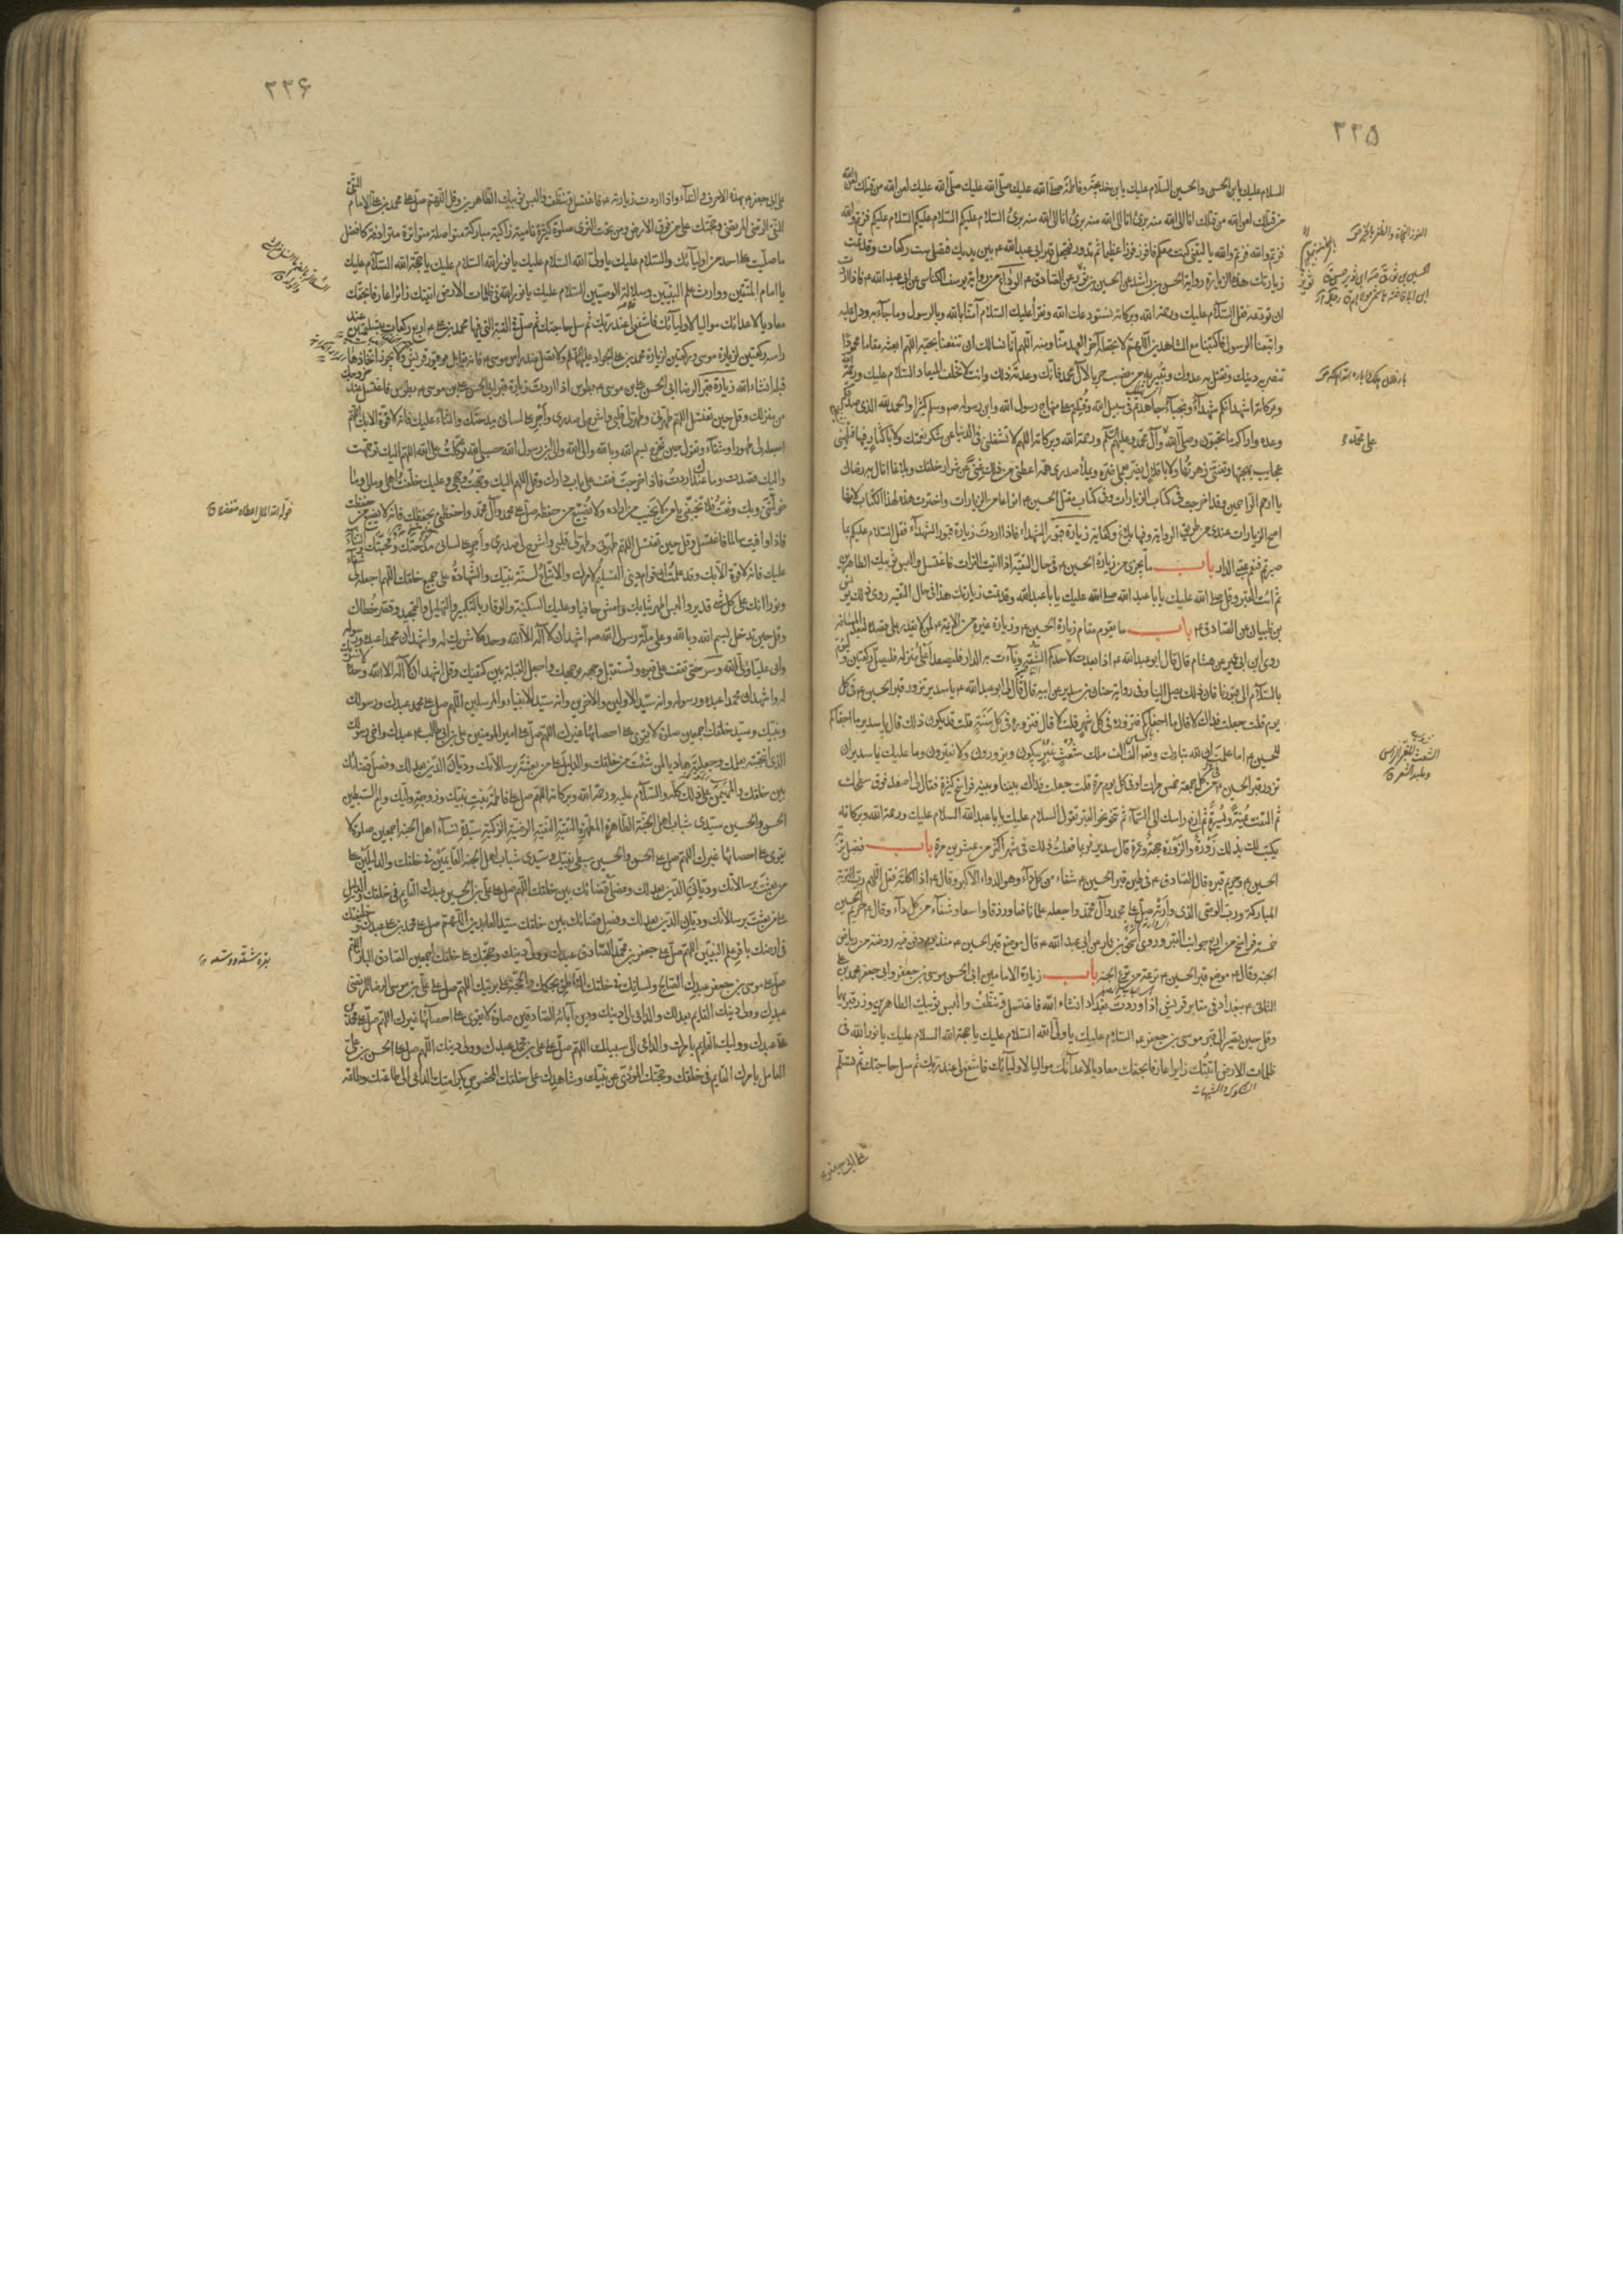 ٢٢۵
السلام عليك يا بن الحسن والحسين السلام عليك يا بن خديجة وفاطمة صلى الله عليك صلى الله عليك صلى الله عليك لعن الله من قتلك لعن الله
من قتلك لعن الله من قتلك انا الى الله منهم برئ انا الى الله منهم برئ انا الى الله منهم برئ السلام عليكم السلام عليكم السلام عليكم فزتم والله
فزتم والله فزتم والله يا ليتنى كنت معكم فافوز فوزا عظيما ثم تدور فتجعل قبر ابى عبد الله ع بين يديك فصل ست ركعات وقد تمت
زيارتك هذه الزيارة رواية الحسن بن راشد عن الحسين بن ثوير عن الصادق ع الوداع من رواية يوسف الكناسى عن ابى عبد الله ع فاذا اردت
ان تودعه فقل السلام عليك ورحمة الله وبركاته نستودعك الله ونقرأ عليك السلام آمنا بالله وبالرسول وما جاء به ودل عليه
واتبعنا الرسول فاكتبنا مع الشاهدين اللهم لا تجعله آخر العهد منا ومنه اللهم انا نسألك ان تنفعنا بحبه اللهم ابعثه مقاما محمودا
تنصر به دينك وتقتل به عدوك وتبير به من نصب حربا لآل محمد فانك وعدته ذلك وانت لا تخلف الميعاد السلام عليك ورحمة الله
وبركاته اشهد انكم شهداء ونجباء جاهدتم فى سبيل الله وقتلتم على منهاج رسول الله وابن رسوله ص وسلم كثيرا والحمد لله الذى صدقكم
وعده واراكم ما تحبون وصلى الله على محمد وآل محمد وعليهم السلم ورحمة الله وبركاته اللهم لا تشغلنى فى الدنيا عن شكر نعمتك ولا باكثار فيها فتلهينى
عجايب بهجتها وتفتنى زهرتها ولا باقلال يضر بعملى ضره ويملأ صدرى همه اعطنى من ذلك غنى عن شرار خلقك وبلاغا انال به رضاك
يا ارحم الراحمين وقد اخرجت فى كتاب الزيارات وفى كتاب مقتل الحسين ع انواعا من الزيارات واخترت هذه لهذا الكتاب لانها
اصح الزيارات عندى من طريق الرواية وفيها بلاغ وكفاية زيارة قبور الشهداء فاذا اردت زيارة قبور الشهداء فقل السلام عليكم بما
صبرتم فنعم عقبى الدار باب ما يجزى من زيارة الحسين ع فى حال التقية اذا اتيت الفرات فاغتسل والبس ثوبيك الطاهرين
ثم ائت القبر وقل صلى الله عليك يا ابا عبد الله صلى الله عليك يا ابا عبد الله وقد تمت زيارتك هذا فى حال التقية روى ذلك يونس
بن ظبيان عن الصادق ع باب ما يقوم مقام زيارة الحسين ع وزيارة غيره من الائمة ع لمن لا يقدر على قصده لبعد المسافة
روى ابن ابى عمير عن هشام قال قال ابو عبد الله ع اذا بعدت لاحدكم الشقة ونأت به الدار فليصعد اعلى منزله فليصل ركعتين وليؤم
بالسلام الى قبورنا فان ذلك يصل الينا وفى رواية حنان بن سدير عن ابيه قال قال لى ابو عبد الله ع يا سدير تزور قبر الحسين ع فى كل
يوم قلت جعلت فداك لا قال ما اجفاكم فتزوره فى كل شهر قلت لا قال فتزوره فى كل سنة قلت قد يكون ذلك قال يا سدير ما اجفاكم
للحسين ع اما علمت ان لله تبارك وتعالى الف الف ملك شعث غبر يبكون ويزورون ولا يفترون وما عليك يا سدير ان
تزور قبر الحسين ع فى كل جمعة خمس مرات او فى كل يوم مرة قلت جعلت فداك بيننا وبينه فراسخ كثيرة فقال لى اصعد فوق سطحك
ثم التفت يمنة ويسرة ثم ارفع راسك الى السماء ثم تنحو نحو القبر تقول السلام عليك يا ابا عبد الله السلام عليك ورحمة الله وبركاته
يكتب لك بذلك زورة والزورة حجة وعمرة قال سدير فربما فعلت ذلك فى شهر اكثر من عشرين مرة باب فضل تربة
الحسين ع وحريم قبره قال الصادق ع فى طين قبر الحسين ع شفاء من كل داء وهو الدواء الاكبر وقال ع اذا اكلته فقل اللهم رب التربة
المباركة ورب الوصى الذى وارته صل على محمد وآل محمد واجعله علما نافعا ورزقا واسعا وشفاء من كل داء وقال ع حريم الحسين
خمسة فراسخ من اربع جوانب القبر وروى اسحق بن عمار عن ابى عبد الله ع قال موضع قبر الحسين ع منذ يوم دفن فيه روضة من رياض
الجنة وقال ع موضع قبر الحسين ع ترعة من ترع الجنة باب زيارة الامامين ابى الحسن موسى بن جعفر وابى جعفر محمد بن على
الثانى ع ببغداد فى مقابر قريش اذا وردت بغداد انشاء الله فاغتسل وتنظف والبس ثوبيك الطاهرين وزر قبريهما
وقل حين تصير الى قبر موسى بن جعفر ع السلام عليك يا ولى الله السلام عليك يا حجة الله السلام عليك يا نور الله فى
ظلمات الارض اتيتك زايرا عارفا بحقك معاديا لاعدائك مواليا لاوليائك فاشفع لى عند ربك ثم سل حاجتك ثم تسلم
على ابى جعفر ع
٢٢۶
على ابى جعفر ع بهذه الاحرف والبقاء واذا اردت زيارته ع فاغتسل وتنظف والبس ثوبيك الطاهرين وقل اللهم صل على محمد بن على الامام
التقى النقى الرضى المرضى وحجتك على من فوق الارض ومن تحت الثرى صلوة كثيرة نامية زاكية مباركة متواصلة متواترة مترادفة كافضل
ما صليت على احد من اوليائك والسلام عليك يا ولى الله السلام عليك يا نور الله السلام عليك يا حجة الله السلام عليك
يا امام المتقين ووارث علم النبيين وسلالة الوصيين السلام عليك يا نور الله فى ظلمات الارض اتيتك زائرا عارفا بحقك
معاديا لاعدائك مواليا لاوليائك فاشفع لى عند ربك ثم سل حاجتك ثم صل فى القبة التى فيها محمد بن على ع اربع ركعات بتسليمتين عند
راسه ركعتين لزيارة موسى وركعتين لزيارة محمد بن على الجواد عليهما السلم ولا تصل عند راس موسى ع فانه يقابل قبور قريش ولا يجوز اتخاذها
قبلة انشاء الله زيارة قبر الرضا ابى الحسن على بن موسى ع بطوس اذا اردت زيارة قبر ابى الحسن على بن موسى ع بطوس فاغتسل عند خروجك
من منزلك وقل حين تغتسل اللهم طهرنى وطهر لى قلبى واشرح لى صدرى واجر على لسانى مدحتك والثناء عليك فانه لا قوة الا بك اللهم
اجعله لى طهورا وشفاء وتقول حين تخرج بسم الله وبالله والى الله والى ابن رسول الله حسبى الله توكلت على الله اللهم اليك توجهت
واليك قصدت وما عندك اردت فاذا خرجت فقف على باب دارك وقل اللهم اليك وجهت وجهى وعليك خلفت اهلى ومالى وما
خولتنى وبك وثقت فلا تخيبنى يا من لا يخيب من اراده ولا يضيع من حفظه صل على محمد وآل محمد واحفظنى بحفظك فانه لا يضيع من حفظت
فاذا وافيت سالما فاغتسل وقل حين تغتسل اللهم طهرنى وطهر لى قلبى واشرح لى صدرى واجر على لسانى مدحتك ومحبتك والثناء
عليك فانه لا قوة الا بك وقد علمت ان قوام دينى التسليم لامرك والاتباع لسنة نبيك والشهادة على جميع خلقك اللهم اجعله لى شفاء
ونورا انك على كل شئ قدير والبس اطهر ثيابك وامش حافيا وعليك السكينة والوقار بالتكبير والتهليل والتمجيد وقصر خطاك
وقل حين تدخل بسم الله وبالله وعلى ملة رسول الله ص اشهد ان لا اله الا الله وحده لا شريك له واشهد ان محمدا عبده ورسوله
وان عليا ولى الله وسر حتى تقف على قبره وتستقبل وجهه بوجهك واجعل القبلة بين كتفيك وقل اشهد ان لا اله الا الله وحده لا شريك
له واشهد ان محمدا عبده ورسوله وانه سيد الاولين والاخرين وانه سيد الانبياء والمرسلين اللهم صل على محمد عبدك ورسولك
ونبيك وسيد خلقك اجمعين صلوة لا يقوى على احصائها غيرك اللهم صل على امير المؤمنين على بن ابى طالب ع عبدك واخى رسولك
الذى انتجبته بعلمك وجعلته هاديا لمن شئت من خلقك والدليل على من بعثته برسالاتك وديان الدين بعدلك وفصل قضائك
بين خلقك والمهيمن على ذلك كله والسلام عليه ورحمة الله وبركاته اللهم صل على فاطمة بنت نبيك وزوجة وليك وام السبطين
الحسن والحسين سيدى شباب اهل الجنة الطاهرة المطهرة التقية النقية الرضية الزكية سيدة نساء اهل الجنة اجمعين صلوة لا
يقوى على احصائها غيرك اللهم صل على الحسن والحسين سبطى نبيك وسيدى شباب اهل الجنة القائمين فى خلقك والدليلين على
من بعثت برسالاتك وديانى الدين بعدلك وفصلى قضائك بين خلقك اللهم صل على على بن الحسين عبدك القايم فى خلقك والدليل
على من بعثت برسالاتك وديان الدين بعدلك وفصل قضائك بين خلقك سيد العابدين اللهم صل على محمد بن على عبدك وخليفتك
فى ارضك باقر علم النبيين اللهم صل على جعفر بن محمد الصادق عبدك وولى دينك وحجتك على خلقك اجمعين الصادق البار اللهم
صل على موسى بن جعفر عبدك الصالح ولسانك فى خلقك الناطق بحكمك والحجة على بريتك اللهم صل على على بن موسى الرضا المرتضى
عبدك وولى دينك القايم بعدلك والداعى الى دينك ودين آبائه الصادقين صلوة لا يقوى على احصائها غيرك اللهم صل على محمد بن
على عبدك ووليك القايم بامرك والداعى الى سبيلك اللهم صل على على بن محمد عبدك وولى دينك اللهم صل على الحسن بن على
العامل بامرك القايم فى خلقك وحجتك المؤدى عن نبيك وشاهدك على خلقك المخصوص بكرامتك الداعى الى طاعتك وطاعة